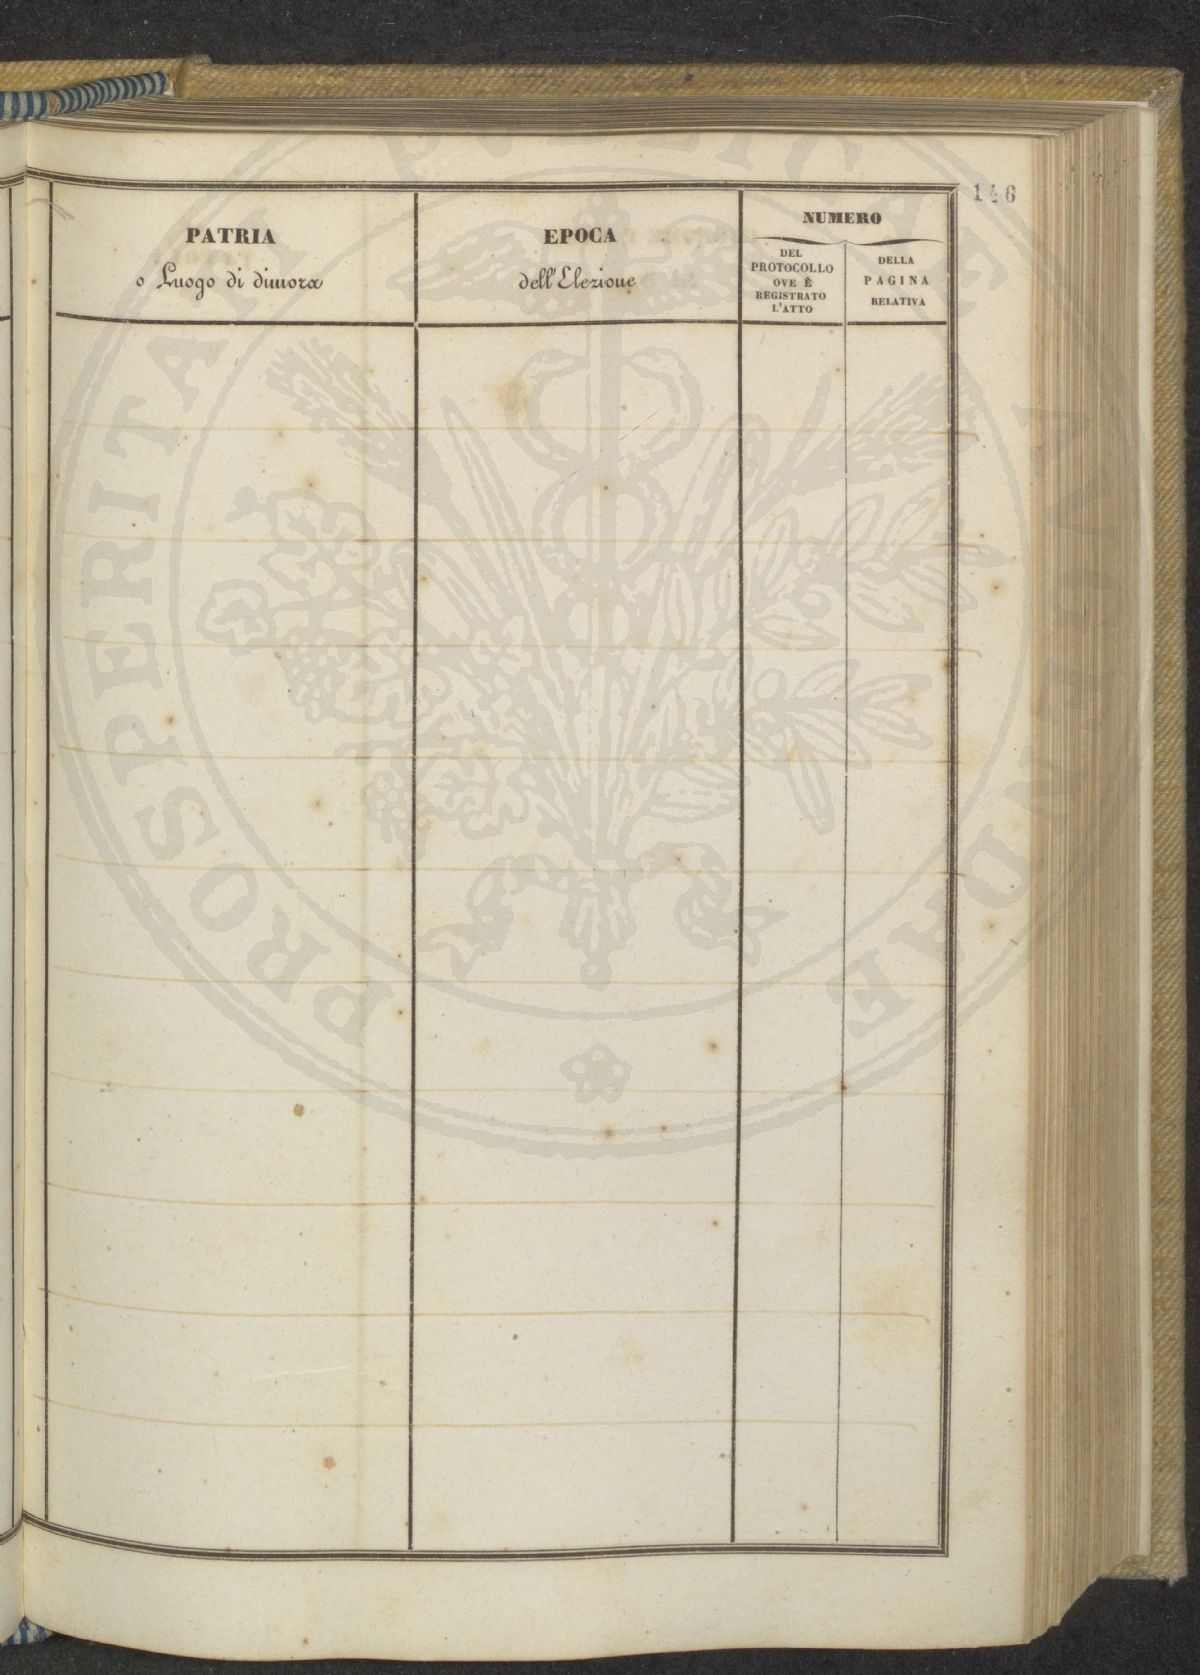 146
PATRIA
o Luogo di dimora
EPOCA
dell'Elezione
NUMERO
DEL
PROTOCOLLO
OVE È
REGISTRATO
L'ATTO
DELLA
PAGINA
RELATIVA
PROSPERITATI PUBLICAE AUGENDAE